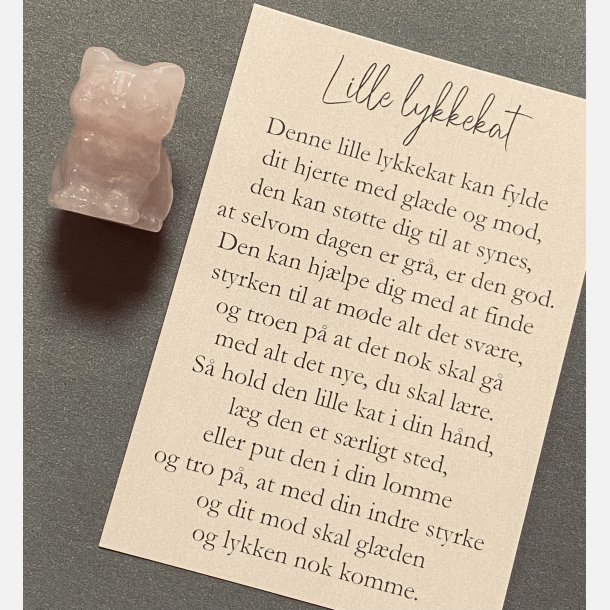 Lille lykkekat
Denne lille lykkekat kan fylde
dit hjerte med glæde og mod,
den kan støtte dig til at synes,
at selvom dagen er grå, er den god.
Den kan hjælpe dig med at finde
styrken til at møde alt det svære,
og troen på at det nok skal gå
med alt det nye, du skal lære.
Så hold den lille kat i din hånd,
læg den et særligt sted,
eller put den i din lomme
og tro på, at med din indre styrke
og dit mod skal glæden
og lykken nok komme.